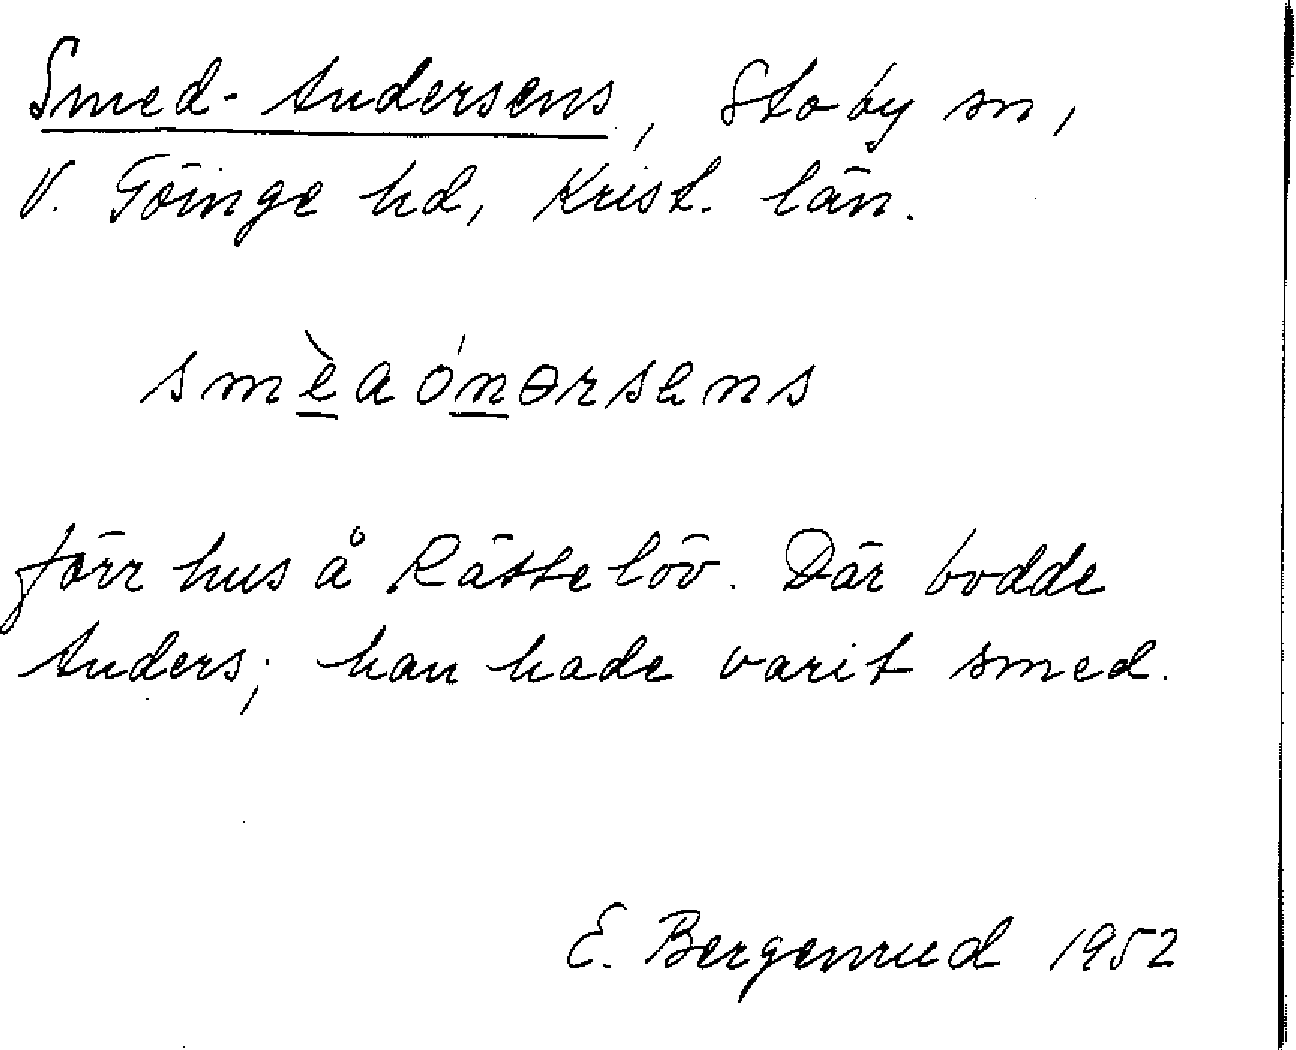 Smed-Andersens, Stoby sn,
V. Göinge hd, Krist. län.
smèaónərsens
förr hus å Rättelöv. Där bodde
Anders; han hade varit smed.
E. Bergenrud 1952